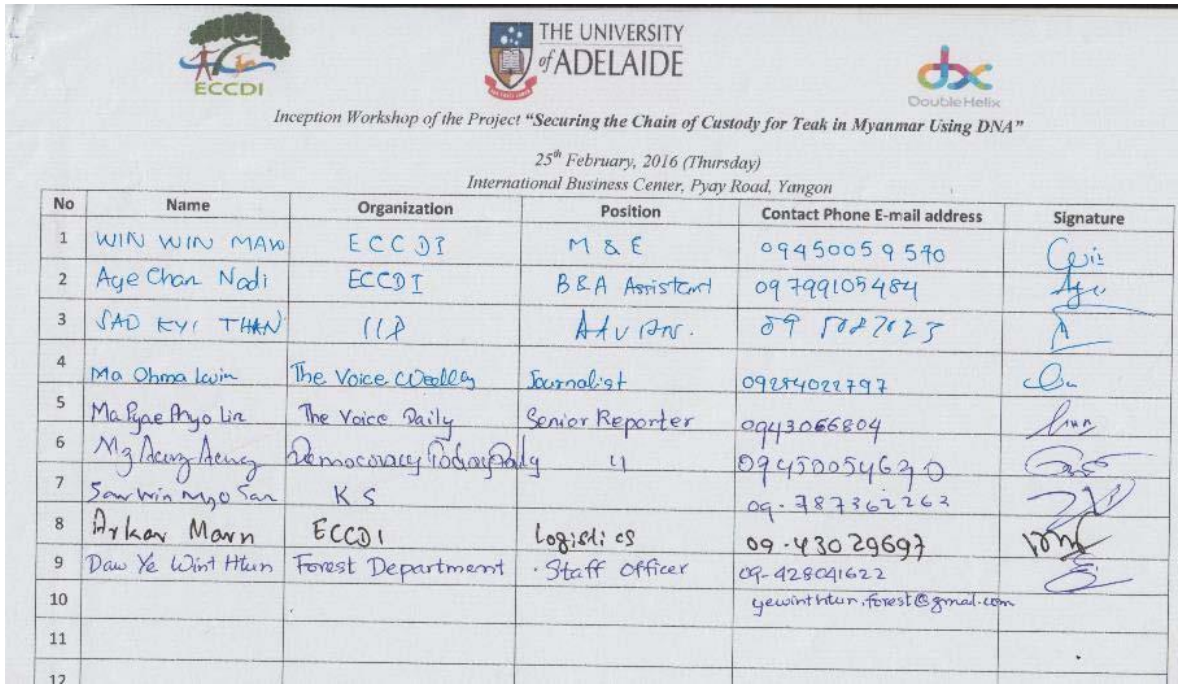 ECCDI
THE UNIVERSITY
of ADELAIDE
dbx
DoubleHelix
Inception Workshop of the Project "Securing the Chain of Custody for Teak in Myanmar Using DNA"
25th February, 2016 (Thursday)
International Business Center, Pyay Road, Yangon
No Name Organization Position Contact Phone E-mail address Signature
1 WIN WIN MAW ECCDI M & E 09450059590
2 Aye Chan Nadi ECCDI B&A Assistant 09799105484
3 SAO KYI THAN
4 Ma Ohma The Voice Journalist 09284022797
5 The Voice Daily Senior Reporter 0943066804
6 Mg Aung Aung Democracy Today Daily 〃 09450054630
7 Saw Win Myo San KS 09-787362263
8 Arkar ECCDI Logistics 09-43029697
9 Daw Ye Wint Htun Forest Department Staff Officer 09-428041622
10 yewinthtun.forest@gmail.com
11
12